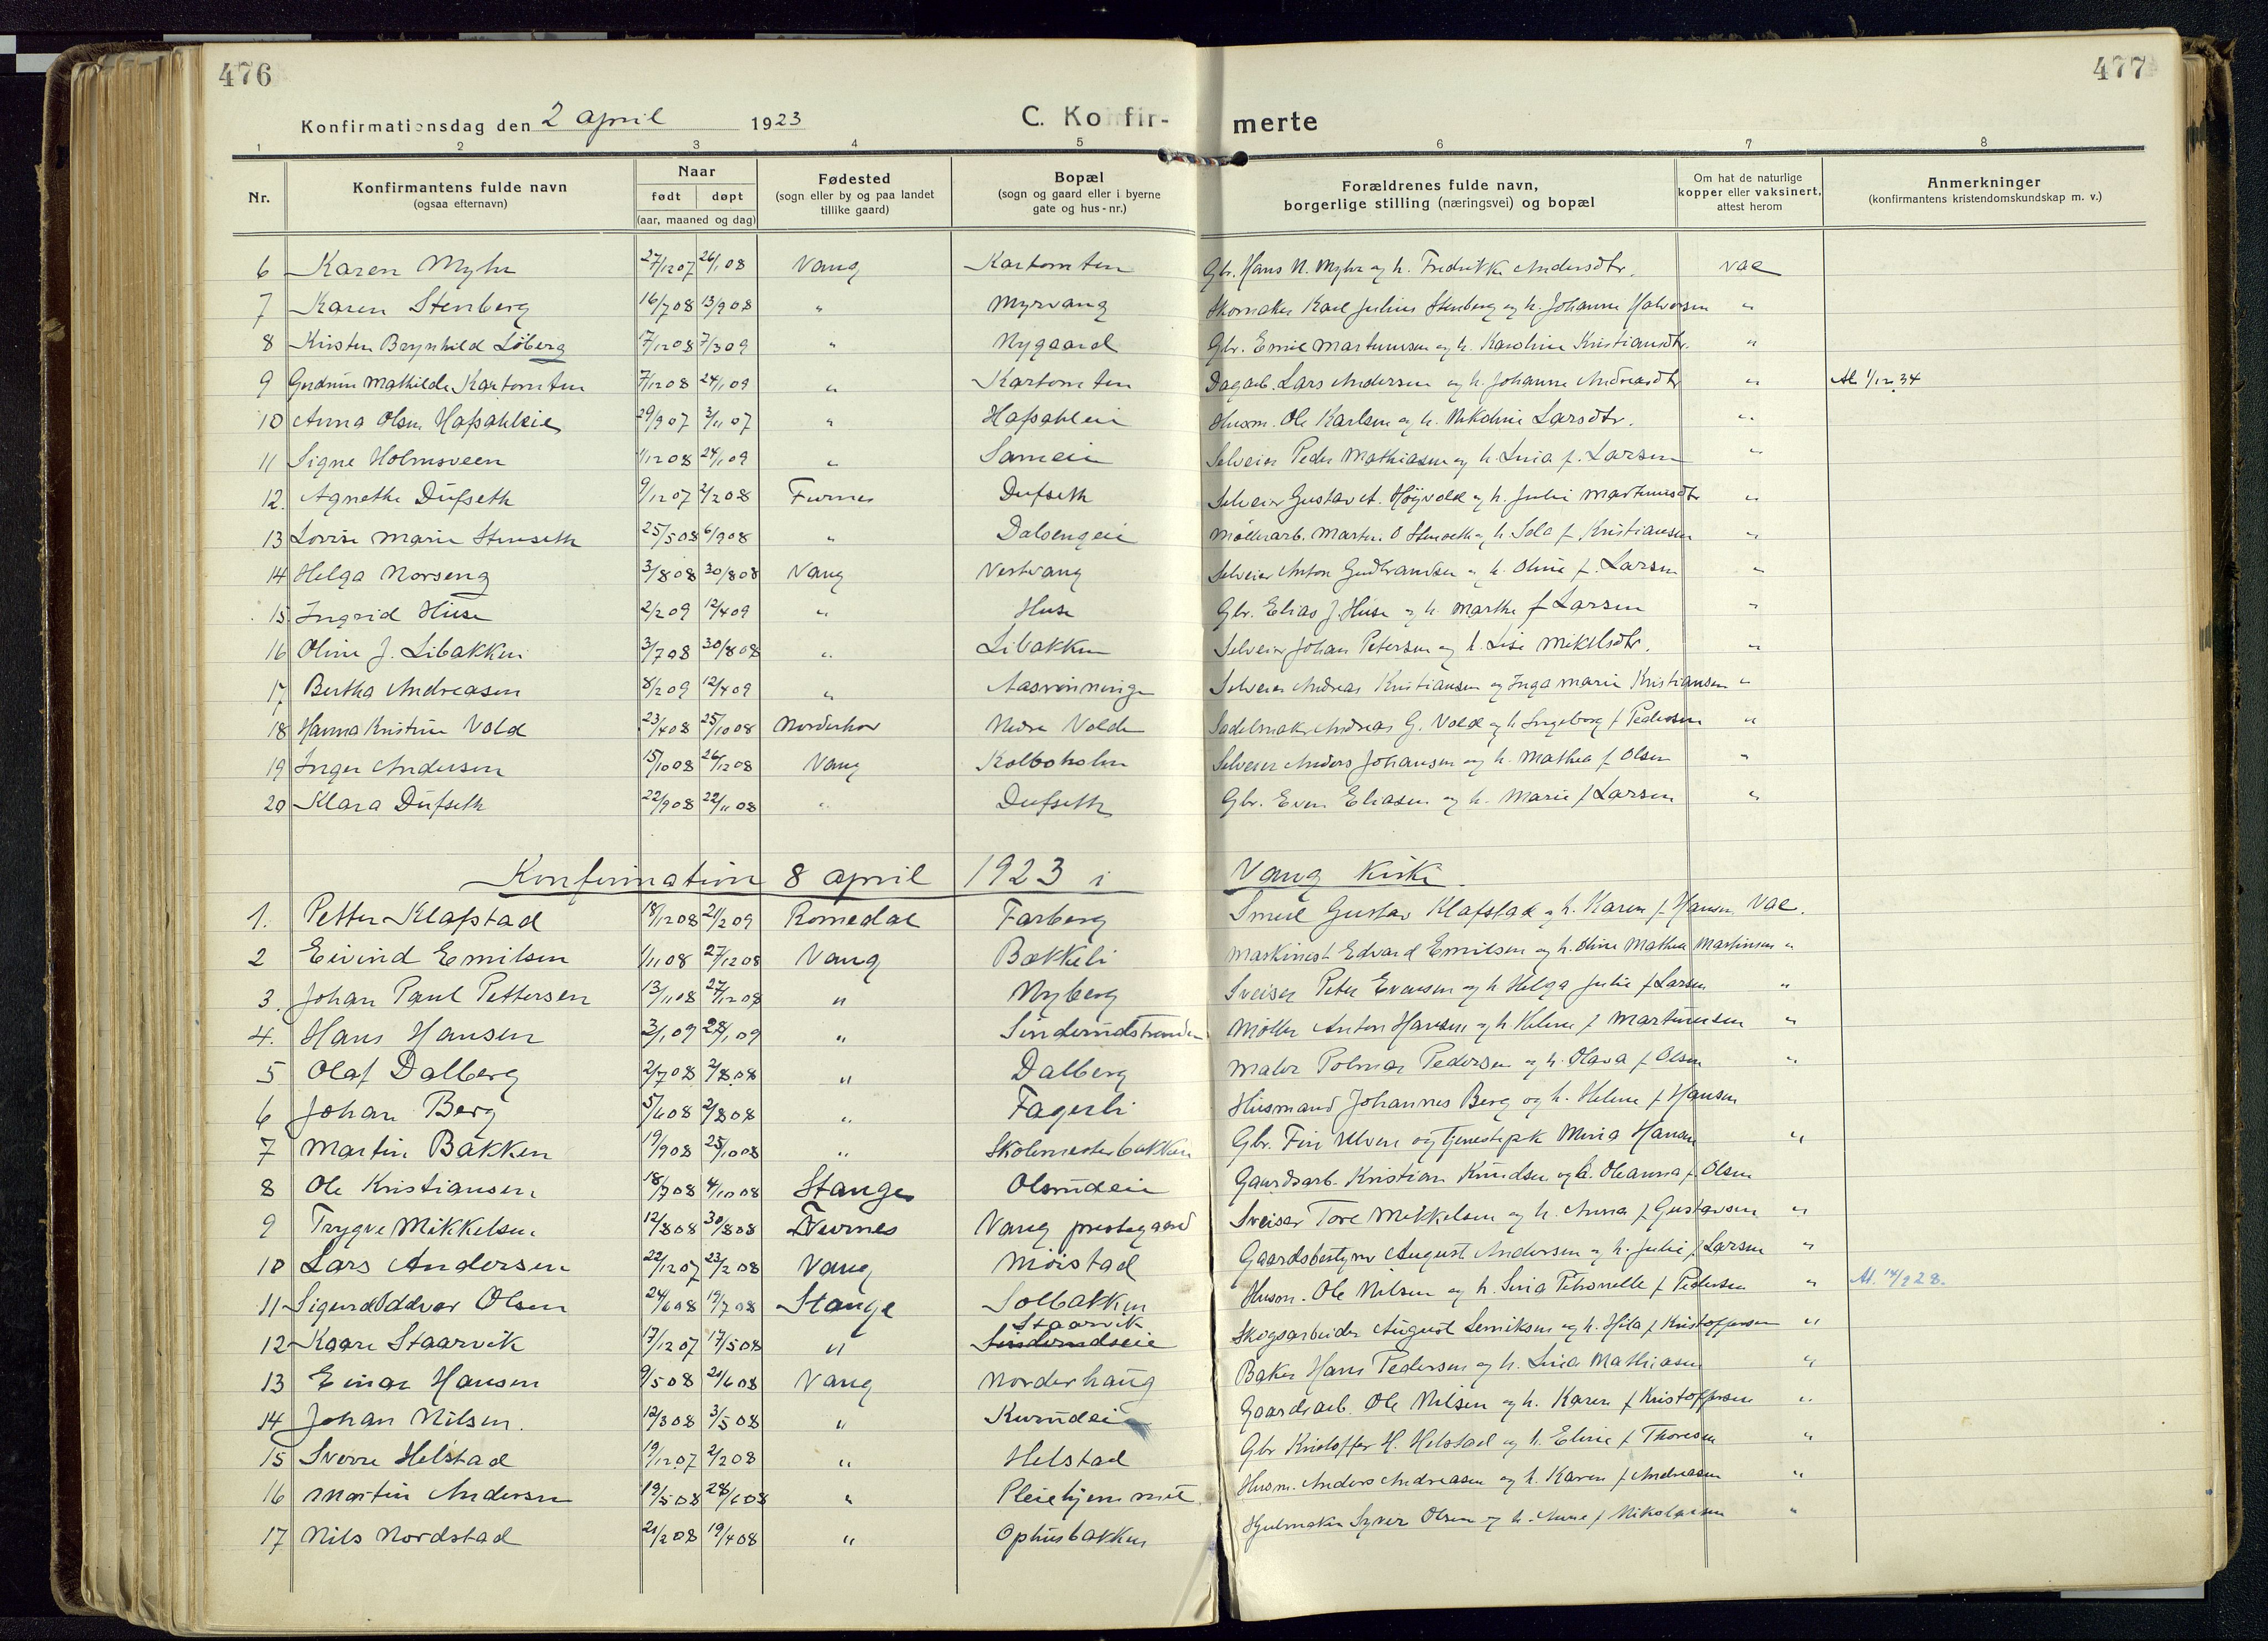 476
477
Konfirmationsdag den 2 april 1923
C. Konfir-merte
1 2 3 4 5 6 7 8
Nr. | Konfirmantens fulde navn (ogsaa efternavn) | Naar født døpt (aar, maaned og dag) | Fødested (sogn eller by og paa landet tillike gaard) | Bopæl (sogn og gaard eller i byerne gate og hus-nr.) | Forældrenes fulde navn, borgerlige stilling (næringsvei) og bopæl | Om hat de naturlige kopper eller vaksinert, attest herom | Anmerkninger (konfirmantens kristendomskundskap m. v.)
6 Karen Myhr 27/12 07 26/1 08 Vang Kartomten Gbr. Hans N. Myhr og h. Fredrikke Andersdtr. vac
7 Karen Stenberg 16/7 08 13/9 08 " Myrvang Skomaker Karl Julius Stenberg og h. Johanne Halvorsen "
8 Kirsten Brynhild Löberg 17/12 08 7/3 09 " Nygaard Gbr. Emil Martinussen og h. Karoline Kristiansdtr. "
9 Gudrun Mathilde Kartomten 7/12 08 24/1 09 " Kartomten Dagarb. Lars Andersen og h. Johanne Andreasdtr " At. 1/12 34
10 Anna Olsen Hafsahleie 29/9 07 3/11 07 " Hafsahleie Husm. Ole Karlsen og h. Nikoline Larsdtr. "
11 Signe Holmsveen 1/12 08 24/1 09 " Sameie Selveier Peder Mathiasen og h. Lina f. Larsen "
12. Agnethe Dufseth 9/12 07 2/2 08 Furnes Dufseth Selveier Gustav A. Höjvold og h. Julie Martinusdtr "
13 Lovise Marie Stenseth 25/5 08 6/9 08 " Dalsengeie Möllerarb. Martin O Stenseth og h. Sola f. Kristiansen "
14 Helga Norseng 3/8 08 30/8 08 Vang Vestvang Selveier Anton Gudbrandsen og h. Oline f. Larsen "
15 Ingrid Huse 2/2 09 12/4 09 " Huse Gbr. Elias J. Huse og h. Marthe f Larsen "
16 Oline J. Libakken 3/7 08 30/8 08 " Libakken Selveier Johan Petersen og h. Lise Mikelsdtr. "
17 Bertha Andreasen 8/2 09 12/4 09 " Aasvinninge Selveier Andreas Kristiansen og Inga Marie Kristiansen "
18 Hanna Kristine Vold 23/4 08 25/10 08 Norderhov Nedre Volde Sadelmak. Andreas G. Vold og h Ingeborg f Pedersen "
19 Inger Andersen 15/10 08 26/12 08 Vang Kolboholm Selveier Anders Johansen og h. Mathea f Olsen "
20 Klara Dufseth 22/9 08 22/11 08 " Dufseth Gbr. Even Eliasen og h. Marie f Larsen "
Konfirmation 8 april 1923 i Vang kirke
1. Petter Klafstad 18/12 08 21/2 09 Romedal Farberg Smed Gustav Klafstad og h. Karen f. Hansen Vac.
2 Eivind Emilsen 1/11 08 27/12 08 Vang Bækkeli Maskinist Edvard Emilsen og h. Oline Mathea Martinsen "
3. Johan Paul Pettersen 13/11 08 27/12 08 " Nyberg Sveiser Peter Evensen og h Helga Julie f Larsen "
4. Hans Hansen 3/1 09 28/1 09 " Sinderudstranden Möller Anton Hansen og h Helene f Martinusen "
5 Olaf Dalberg 2/7 08 2/8 08 " Dalberg Maler Polmar Pedersen og h. Olava f Olsen "
6 Johan Berg 5/6 08 2/8 08 " Fagerli Husmand Johannes Berg og h. Helene f Hansen
7 Martin Bakken 19/9 08 25/10 08 " Skolemesterbakken Gbr. Finn Ulven og tjenestepk Mina Hansen "
8 Ole Kristiansen 18/7 08 4/10 08 Stange Olsrudeie Gaardsarb. Kristian Knudsen og h. Oleanna f. Olsen
9 Trygve Mikkelsen 12/8 08 30/8 08 Furnes Vang prestegaard Sveiser Tore Mikkelsen og h. Anna f Gustavsen "
10 Lars Andersen 22/12 07 23/2 08 Vang Möistad Gaardsbestyrer August Andersen og h. Julie f Larsen "
11 Sigurd Oddvar Olsen 24/6 08 19/7 08 Stange Solbakken Husm. Ole Nilsen og h. Lina Petronelle f Pedersen " At. 14/2 28.
12 Kaare Staarvik 17/12 07 17/5 08 " Staarvik Sinderudseie Skogsarbeider August Henriksen og h. Hilda f Kristoffersen "
13 Einar Hansen 9/5 08 21/6 08 Vang Norderhaug Baker Hans Pedersen og h. Lina Mathiasen "
14 Johan Nilsen. 12/3 08 3/5 08 " Kurudeie Gaardsarb. Ole Nilsen og h. Karen f Kristoffersen "
15 Sverre Helstad 19/12 07 2/2 08 " Helstad Gbr Kristoffer H. Helstad og h. Eline f Thoresen "
16 Martin Andersen 19/5 08 28/6 08 " Pleiehjemmet. Husm. Anders Andreasen og h. Karen f Andreasen "
17 Nils Nordstad 21/2 08 19/4 08 " Ophusbakken Hjulmaker Syver Olsen og h. Anne f Nikolaisen "